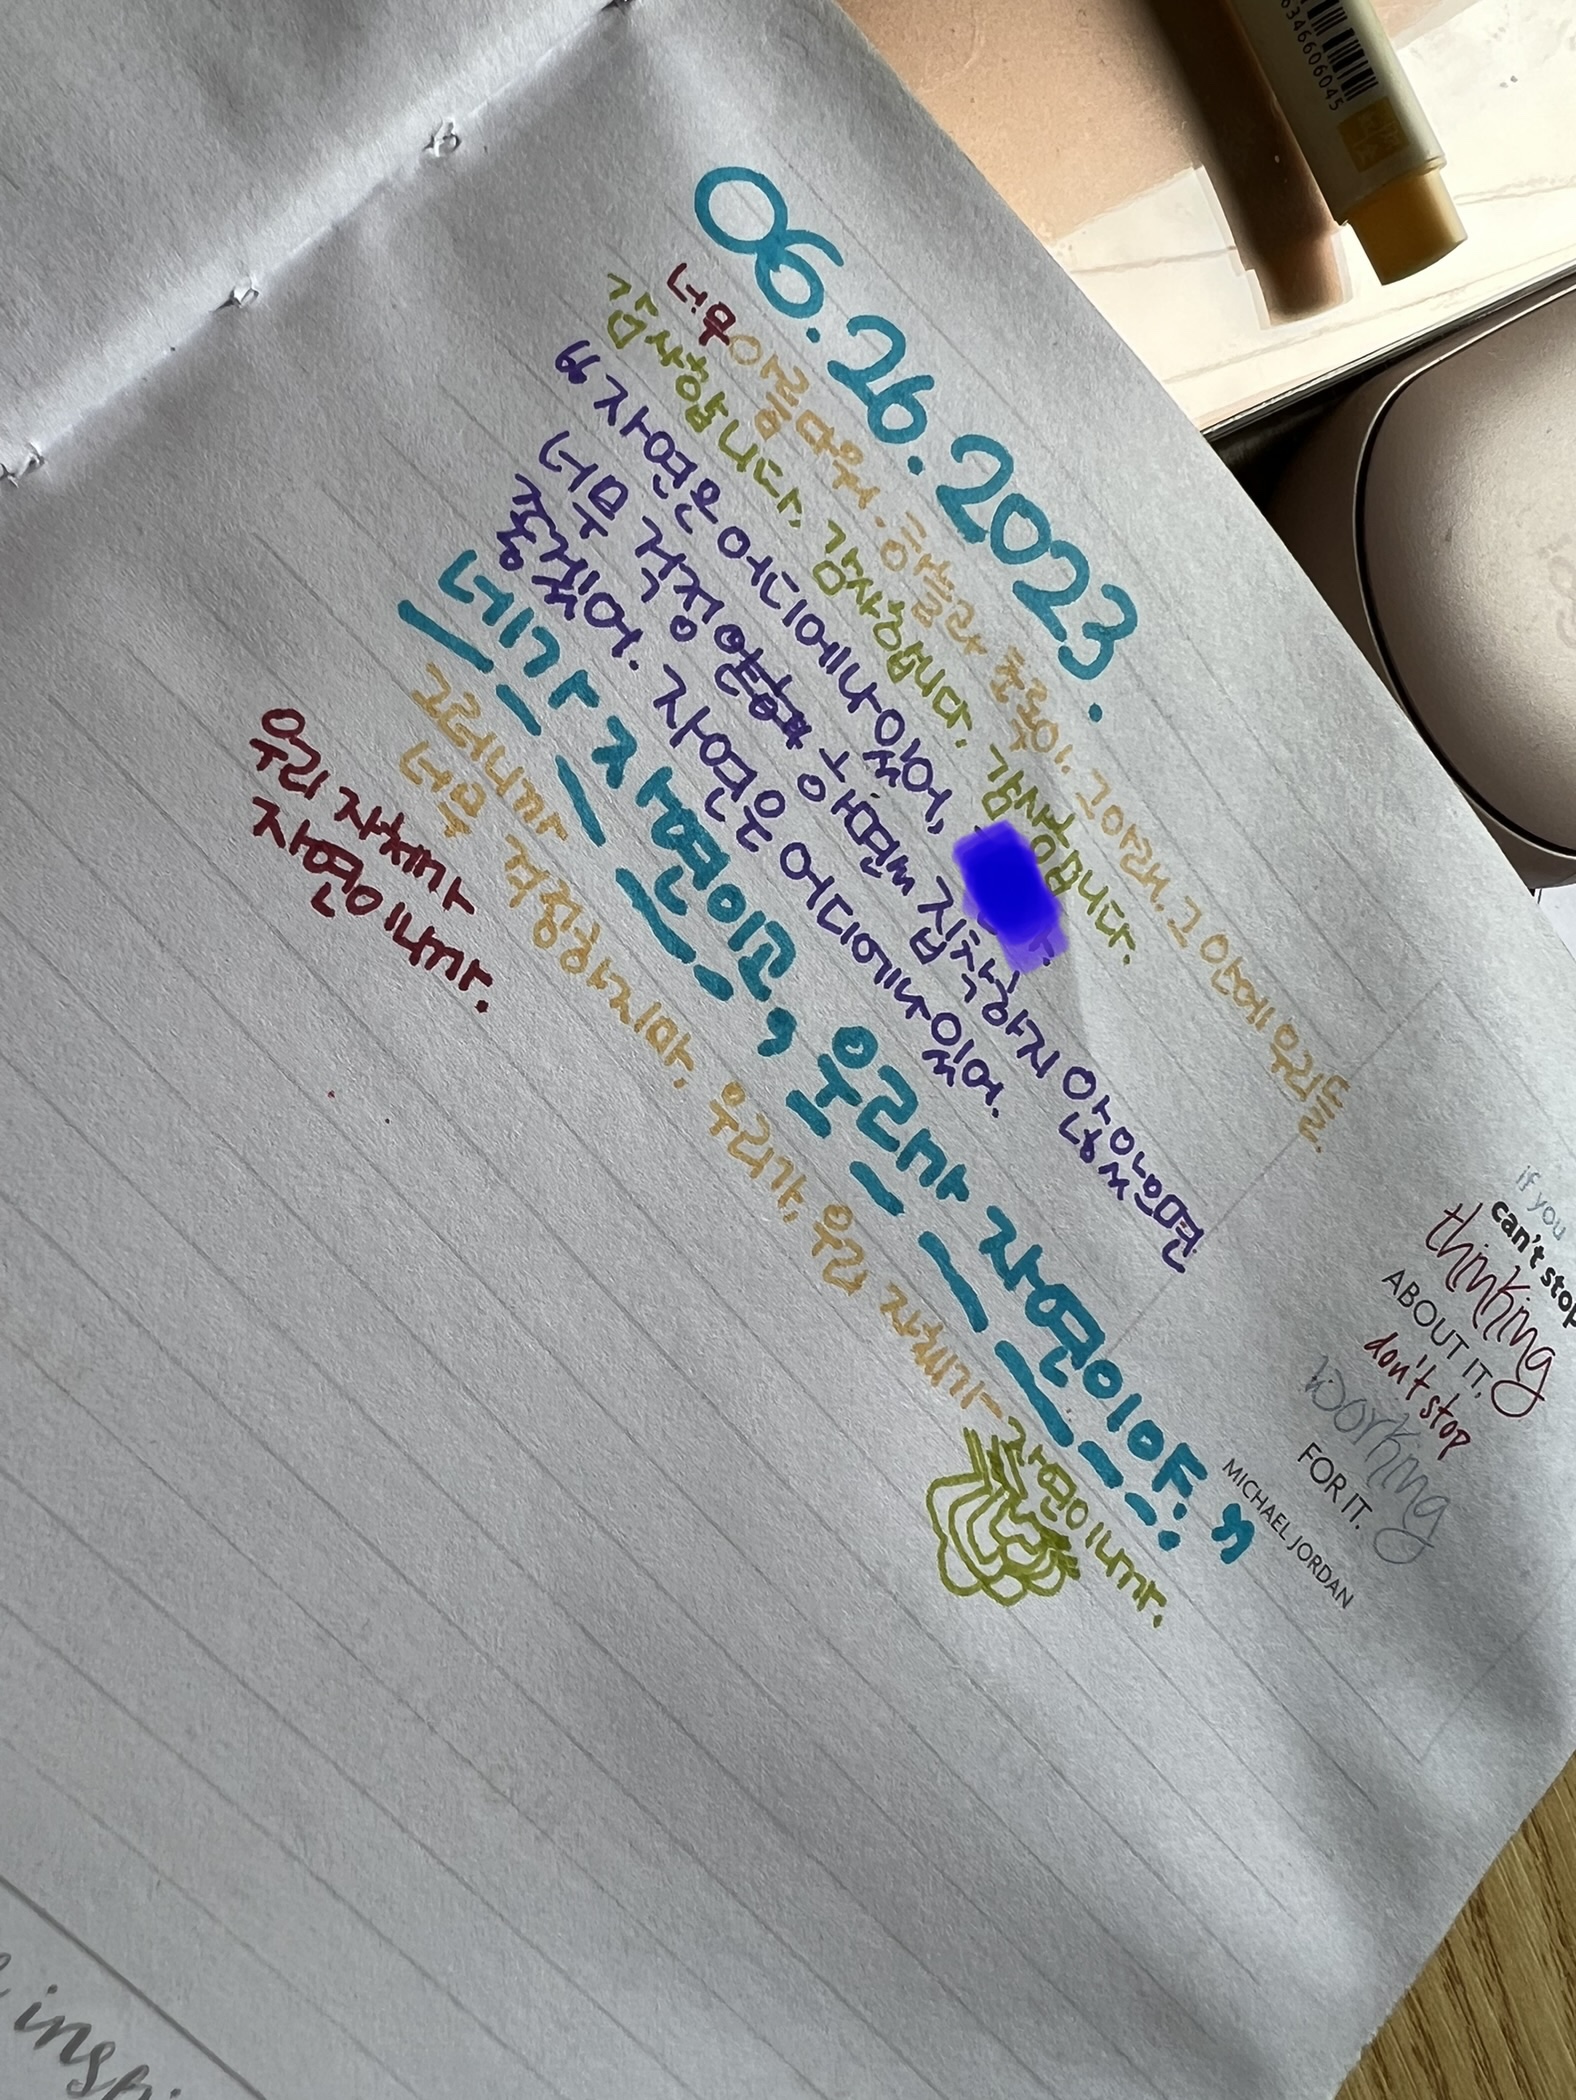 06.26.2023.
너무 아름다워. 하늘과 초록이. 그 아래. 그 안에 우리들.
감사합니다. 감사합니다. 감사합니다.
"자연은 어디에나 있어,
너무 걱정 말고 집착하지 않았으면
좋겠어. 자연은 어디에나 있어.
네가 자연이고, 우리가 자연이야."
그러니까 너무 걱정하지마. 우리가, 우리 자체가-
자연이니까.
우리 자체가
자연이니까.
if you
can't stop
thinking
ABOUT IT,
don't stop
working
FOR IT.
MICHAEL JORDAN
6346606045